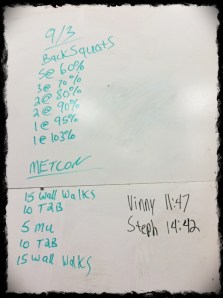 9/3
Back Squats
5@ 60%
3@ 70%
2@ 80%
2@ 90%
1@ 95%
1@ 103%
METCON
15 Wall Walks
10 T2B
5 MU
10 T2B
15 Wall Walks
Vinny 11:47
Steph 14:42